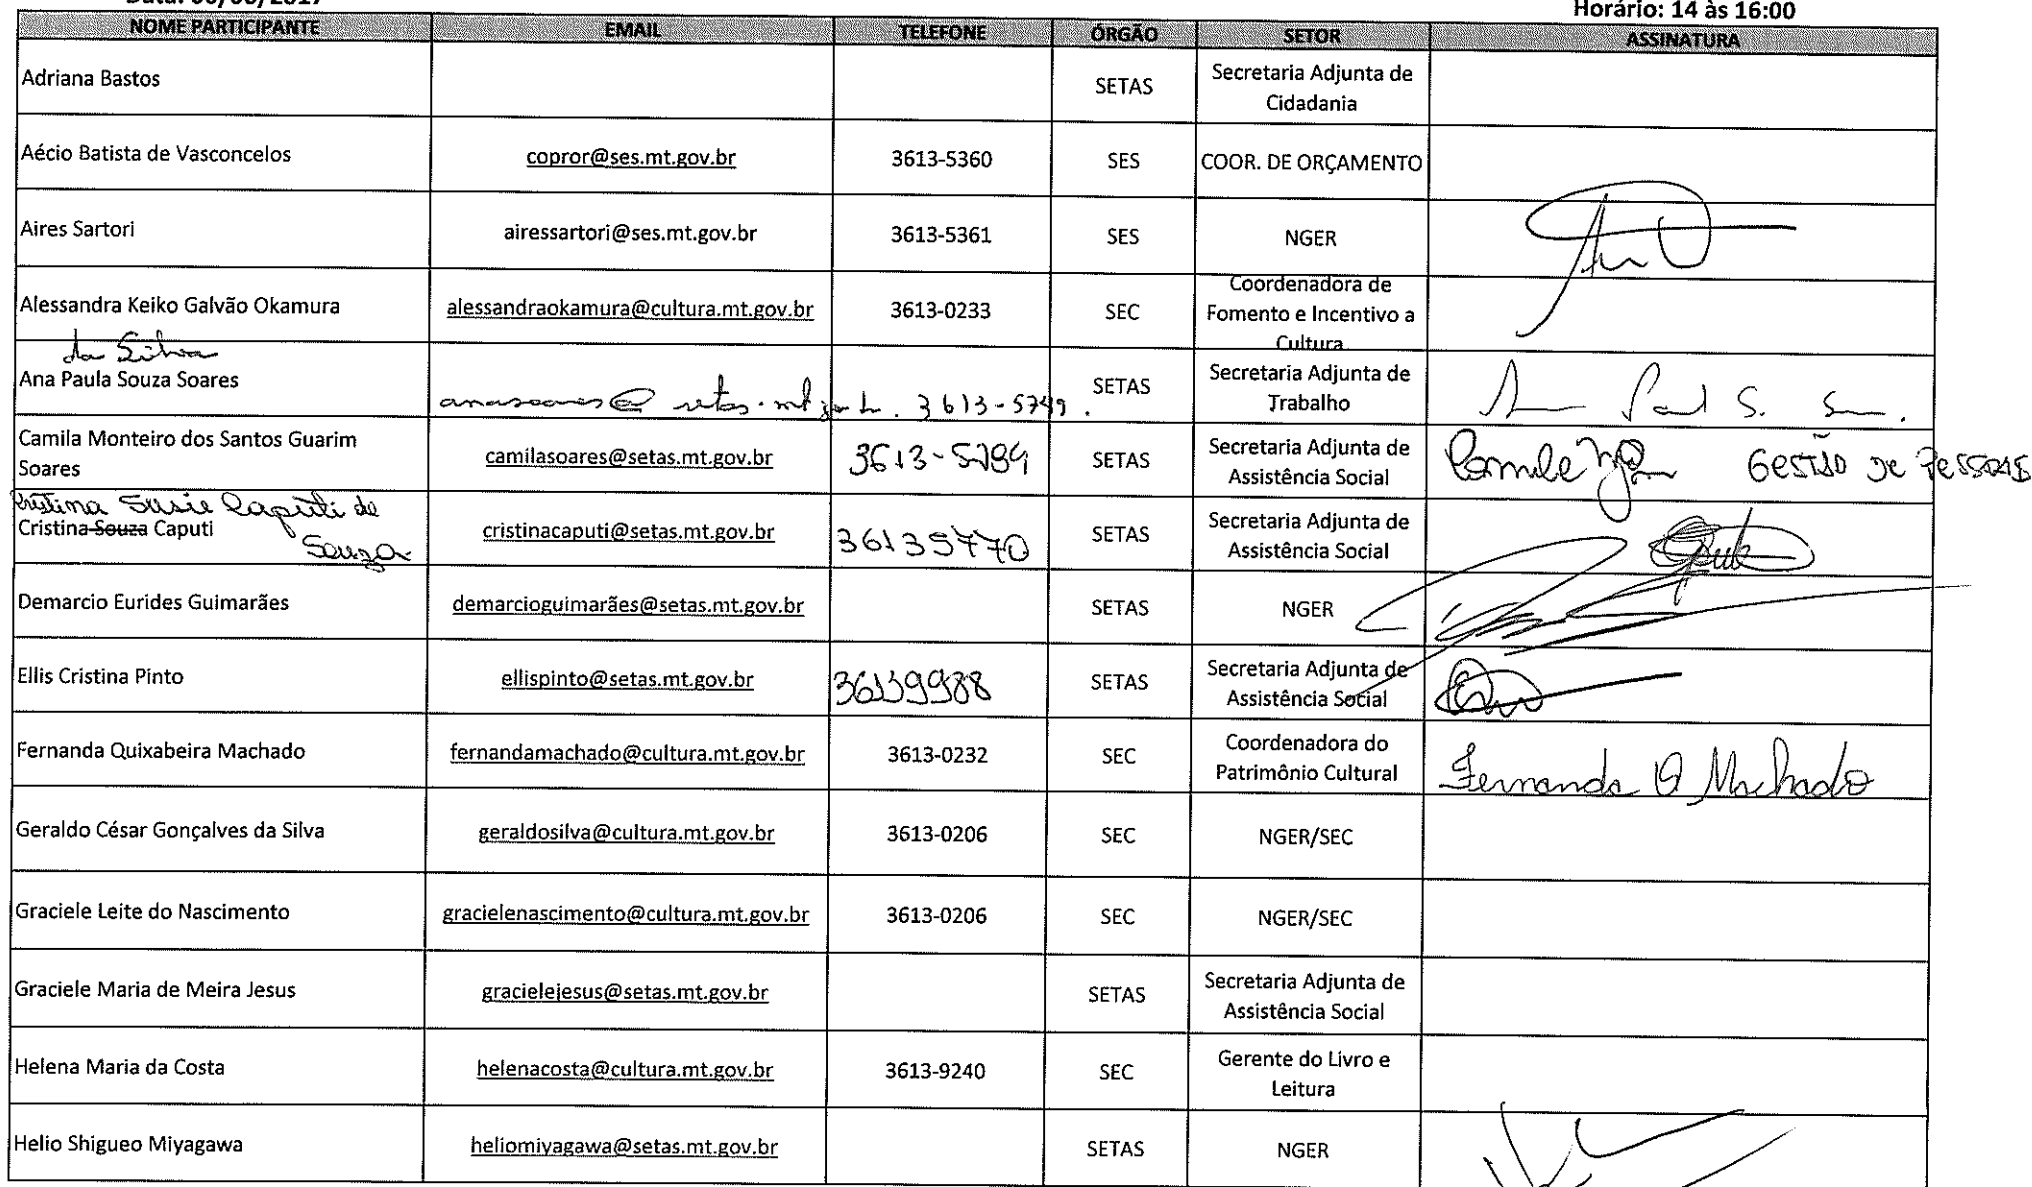 Horário: 14 às 16:00
NOME PARTICIPANTE EMAIL TELEFONE ÓRGÃO SETOR ASSINATURA
Adriana Bastos SETAS Secretaria Adjunta de
Cidadania
Aécio Batista de Vasconcelos copror@ses.mt.gov.br 3613-5360 SES COOR. DE ORÇAMENTO
Aires Sartori airessartori@ses.mt.gov.br 3613-5361 SES NGER
Alessandra Keiko Galvão Okamura alessandraokamura@cultura.mt.gov.br 3613-0233 SEC Coordenadora de
Fomento e Incentivo a
Cultura
da Silva
Ana Paula Souza Soares SETAS Secretaria Adjunta de
Trabalho
Camila Monteiro dos Santos Guarim
Soares camilasoares@setas.mt.gov.br 3613-5789 SETAS Secretaria Adjunta de
Assistência Social GESTÃO DE PESSOAS
Cristina Susie Caputi de
Souza
Cristina Souza Caputi cristinacaputi@setas.mt.gov.br 36135770 SETAS Secretaria Adjunta de
Assistência Social
Demarcio Eurides Guimarães demarcioguimarães@setas.mt.gov.br SETAS NGER
Ellis Cristina Pinto ellispinto@setas.mt.gov.br 36139988 SETAS Secretaria Adjunta de
Assistência Social
Fernanda Quixabeira Machado fernandamachado@cultura.mt.gov.br 3613-0232 SEC Coordenadora do
Patrimônio Cultural Fernanda Q Machado
Geraldo César Gonçalves da Silva geraldosilva@cultura.mt.gov.br 3613-0206 SEC NGER/SEC
Graciele Leite do Nascimento gracielenascimento@cultura.mt.gov.br 3613-0206 SEC NGER/SEC
Graciele Maria de Meira Jesus gracielejesus@setas.mt.gov.br SETAS Secretaria Adjunta de
Assistência Social
Helena Maria da Costa helenacosta@cultura.mt.gov.br 3613-9240 SEC Gerente do Livro e
Leitura
Helio Shigueo Miyagawa heliomiyagawa@setas.mt.gov.br SETAS NGER